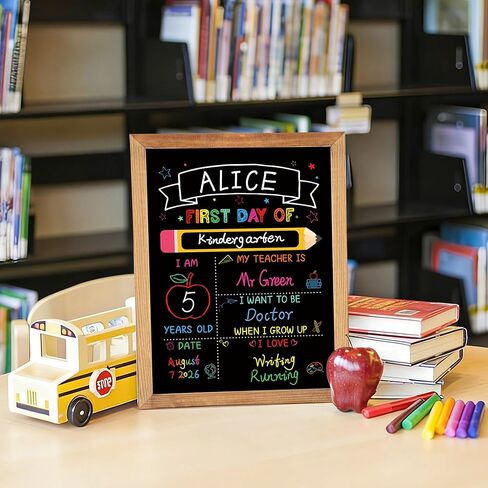 ALICE
FIRST DAY OF
Kindergarten
I AM
5
YEARS OLD
MY TEACHER IS
Mr Green
I WANT TO BE
Doctor
WHEN I GROW UP
DATE
August
7 2026
I LOVE
Writing
Running
STOP